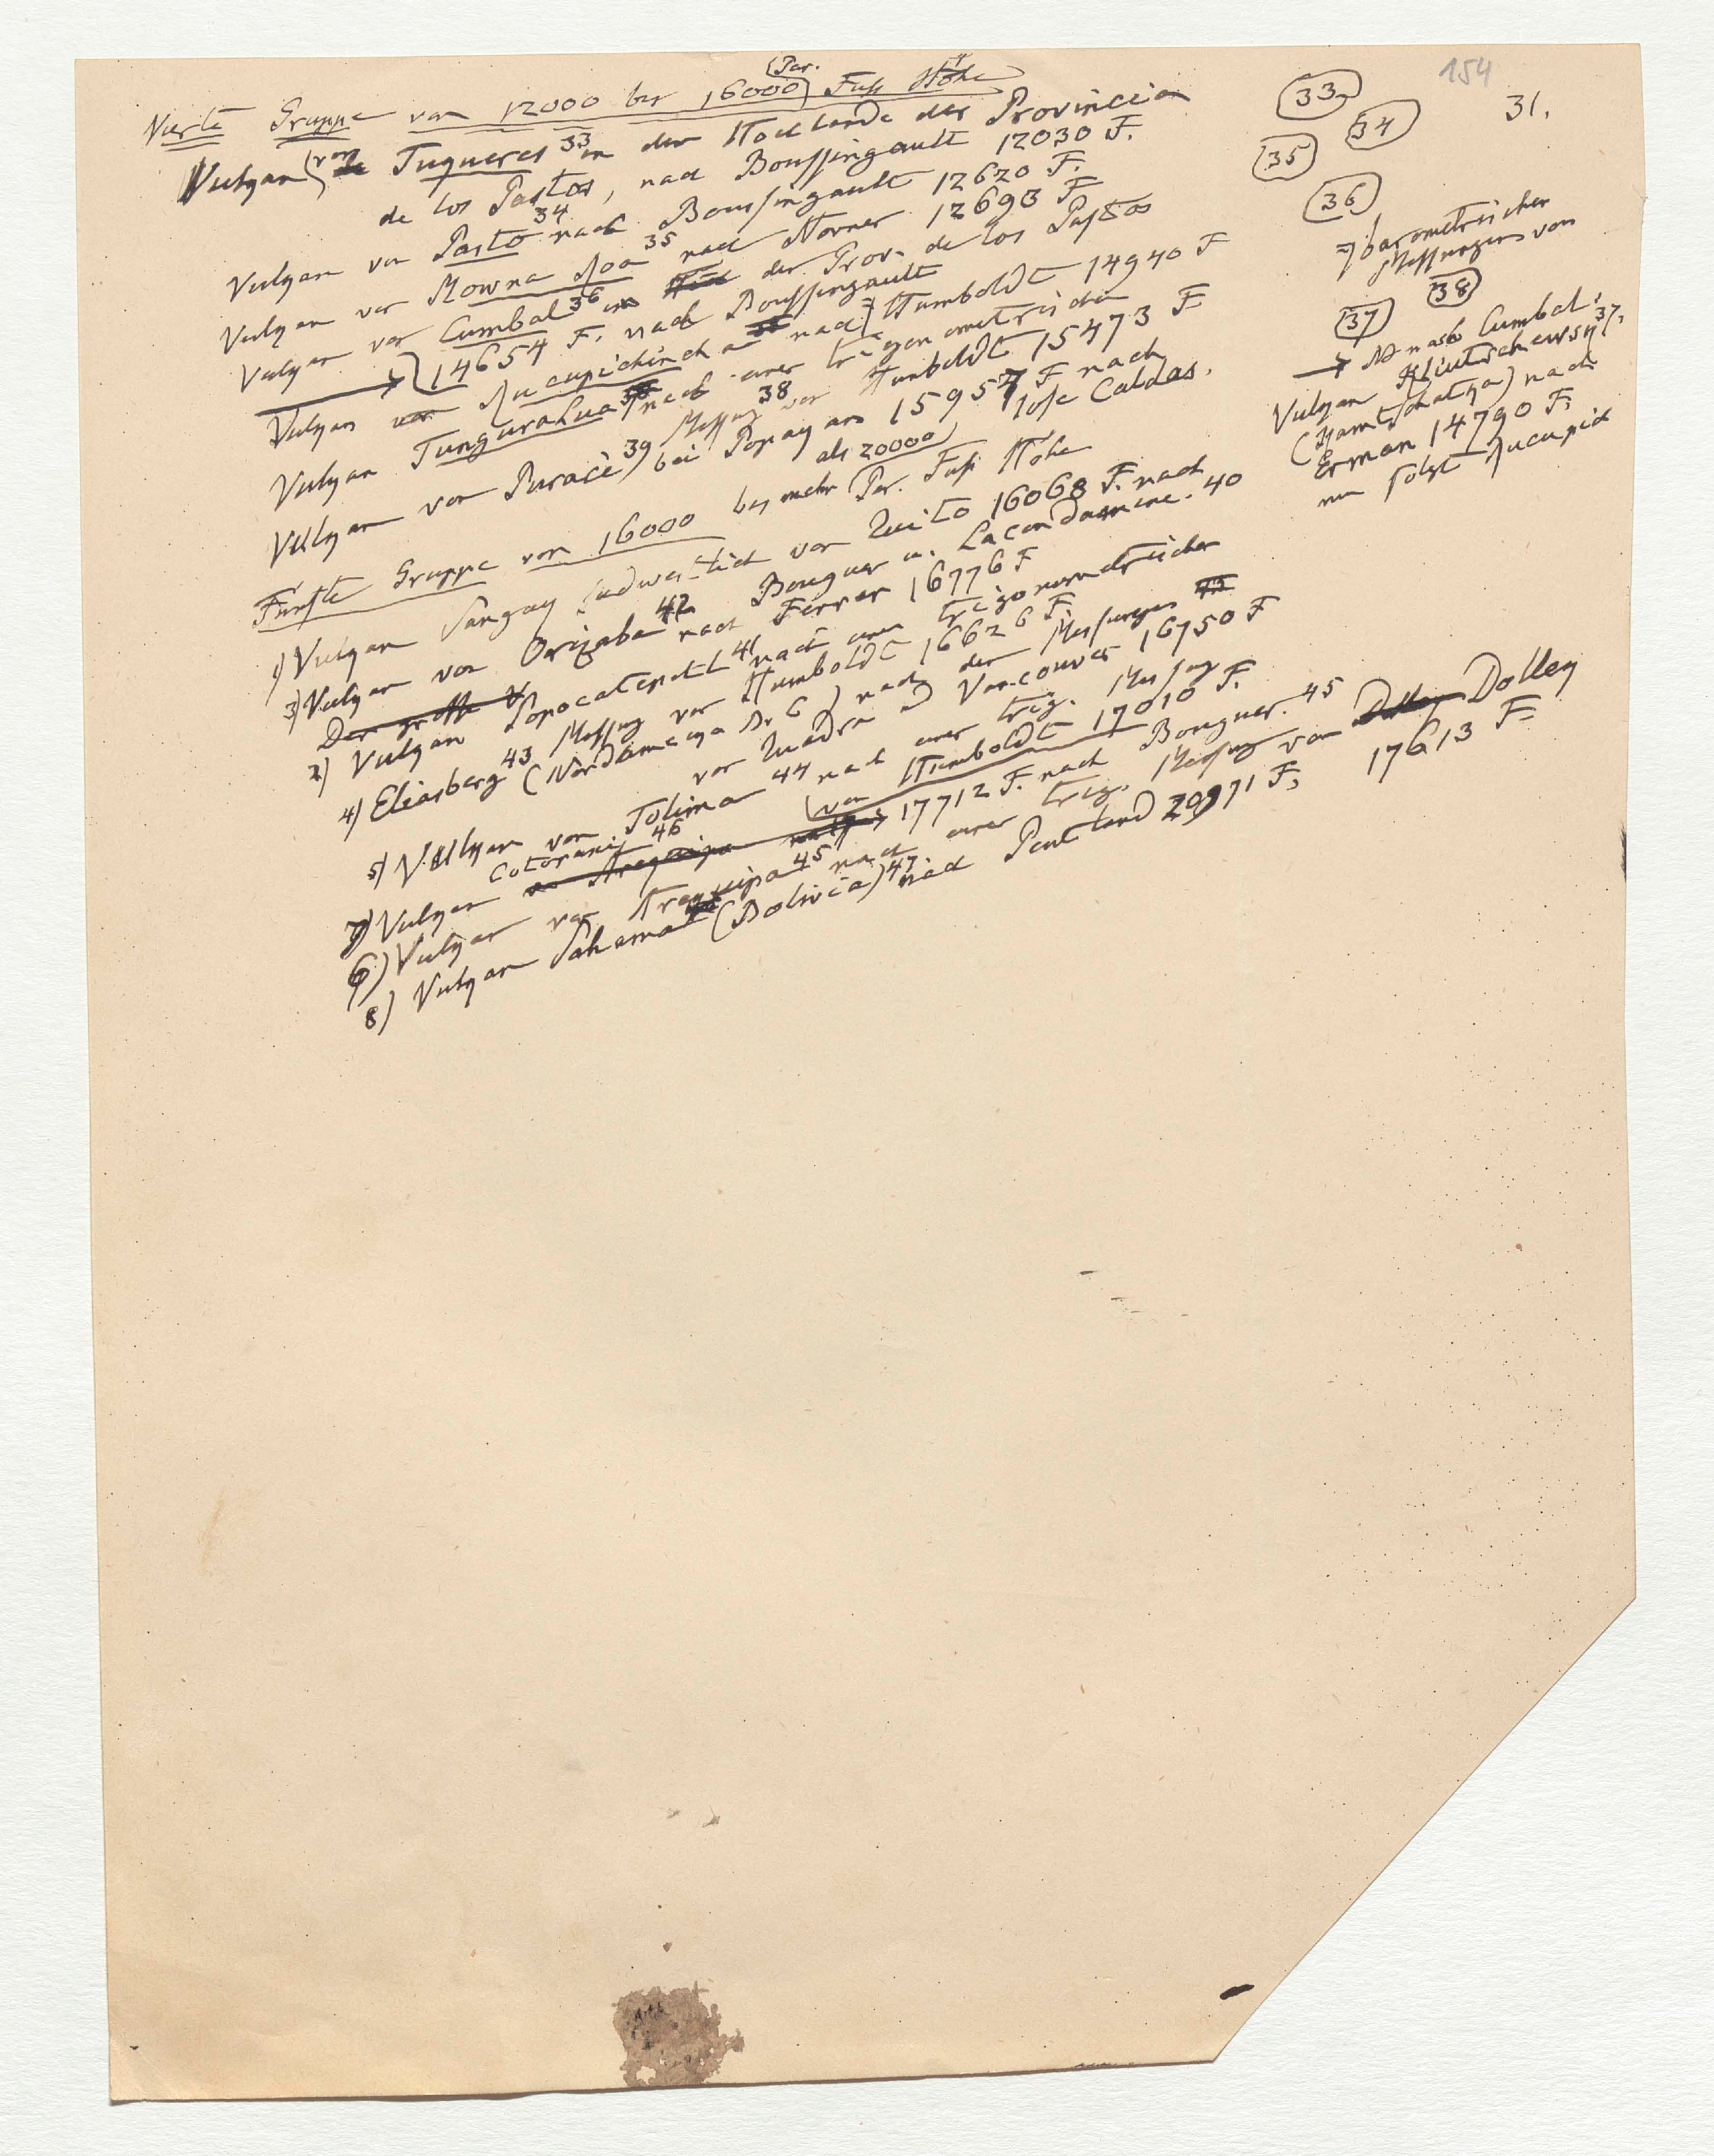 154
31.
Vierte Gruppe von 12000 bis 16000 (Par. Fuß Höhe
Vulkan von Tuqueres 33 in dem Hochlande der Provincia
de los Pastos, nach Boussingault 12030 F.
Vulkan von Pasto 34 nach Boussingault 12620 F.
Vulkan von Mowna Roa 35 nach Horner 12693 F
Vulkan von Cumbal 36 in der Prov. de los Pastos
14654 F. nach Boussingault
Vulkan von Rucupichincha nach Humboldt 14940 F
Vulkan Tungurahua nach einer trigonometrischen
Messung 38 von Humboldt 15473 F
Vulkan von Puracé 39 bei Popayan 15957 F nach
José Caldas.
Fünfte Gruppe von 16000 bis mehr als 20000 Par. Fuß Höhe
1) Vulkan Sangay südwestlich von Quito 16068 F. nach
Bouguer u. Lacondamine. 40
3) Vulkan von Orizaba 42 nach Ferrer 16776 F
Der große V
2) Vulkan Popocatepetl 41 nach einer trigonometrischen
Messung von Humboldt 16626 F.
4) Eliasberg 43 (Nordamerya Br 6) nach den Messungen
von Quadra u Vancouver 16750 F
5) Vulkan von Tolima 44 nach einer trig. Messung
von Humboldt 17010 F.
7) Vulkan Cotopaxi 46 17712 F. nach Bouguer. 45
von Arequipa
6) Vulkan von Arequipa 45 nach einer trig. Messung von Dolley
17613 F.
8) Vulkan Sahama (Bolivia) 47 nach Pentland 20971 F.
33
34
35
36
=) barometrischer
Messungen von
37
38
→ nach Cumbal:
Vulkan Kliutschewsk 37.
(Kamtschatka) nach
Erman 14790 F.
nun folgt Rucupich